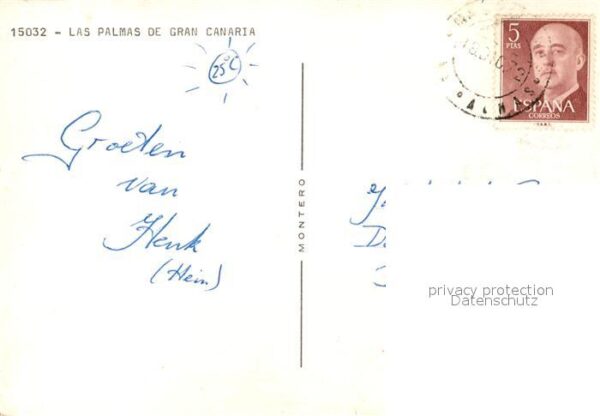 15032 - LAS PALMAS DE GRAN CANARIA
25°C
Groeten
van
Henk
(Hein)
MONTERO
5
PTAS
ESPAÑA
CORREOS
privacy protection
Datenschutz